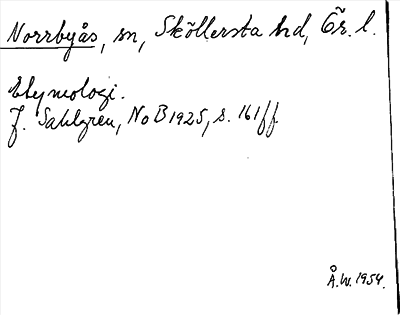 Norrbyås, sn, Sköllersta hd, Ör. l.
Etymologi.
J. Sahlgren, NoB 1925, s. 161 ff.
Å.W. 1954.